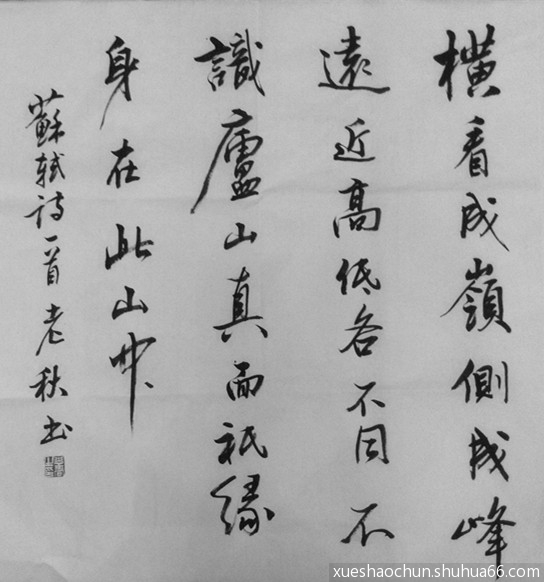 橫看成嶺側成峰
遠近高低各不同不
識廬山真面祇緣
身在此山中
蘇軾詩一首老秋书
xueshaochun.shuhua66.com